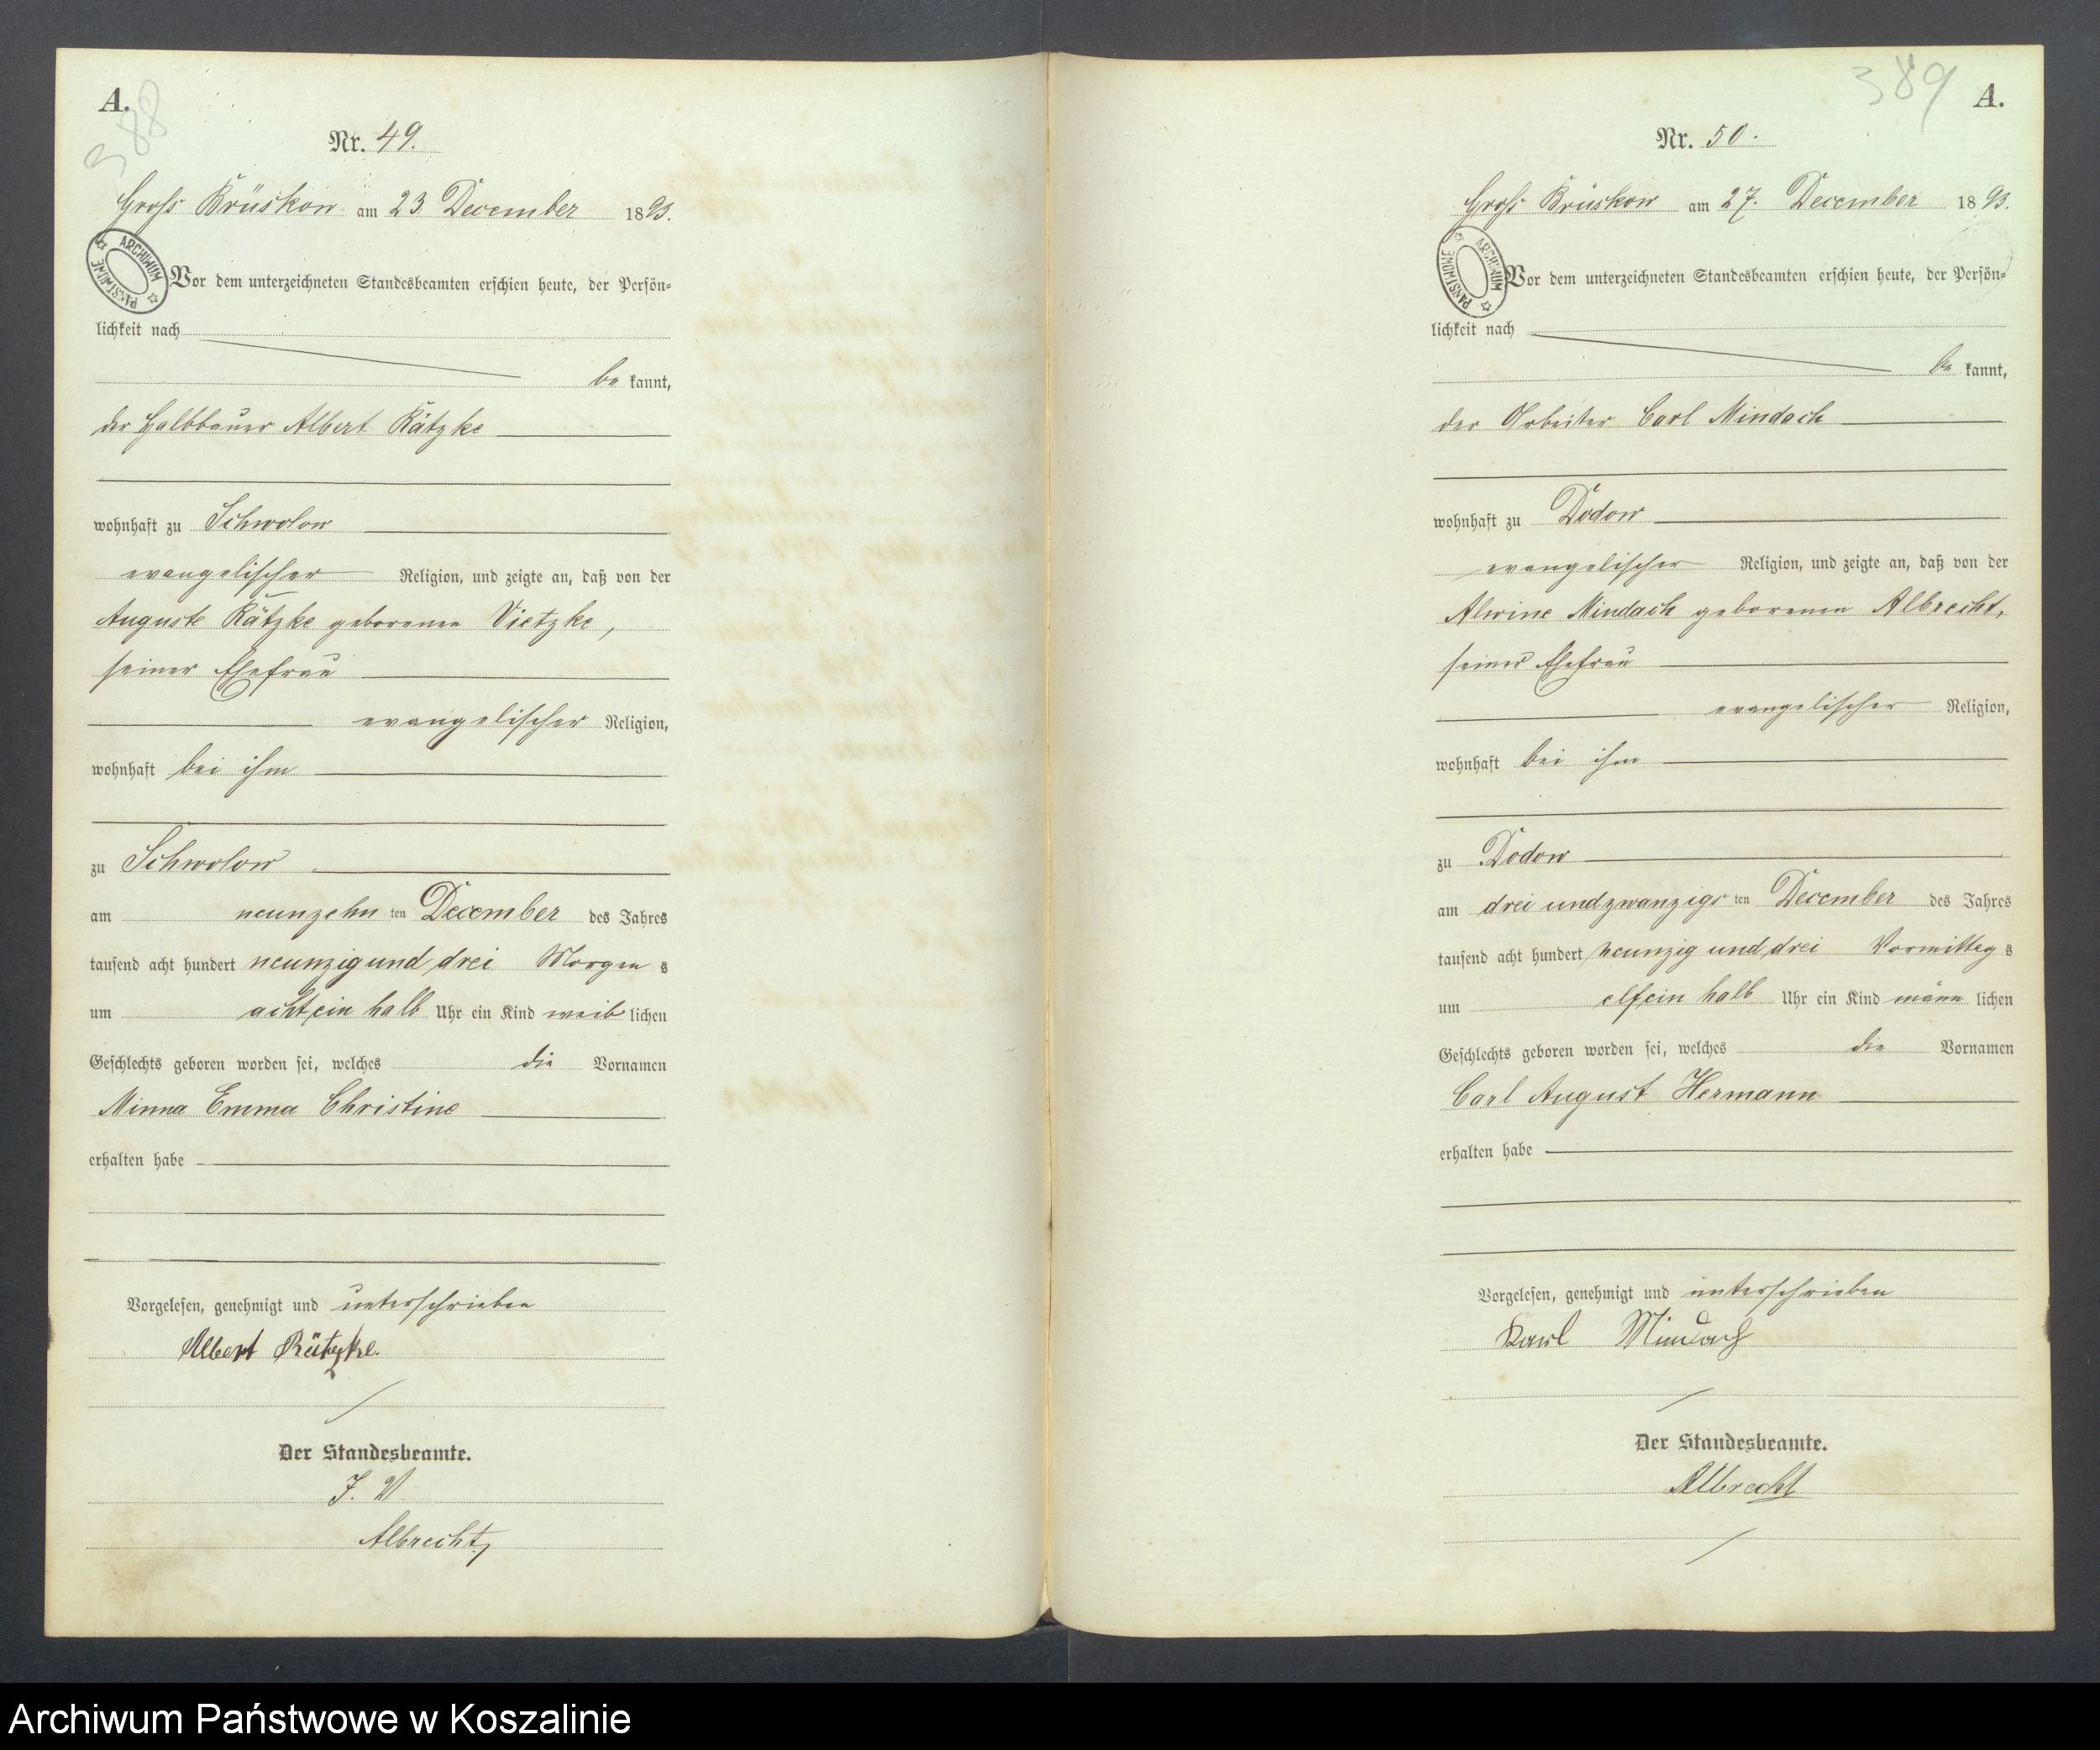 A.
388
Nr. 49.
Gross Brüskow am 23 December 1893.
ARCHIWUM PAŃSTWOWE
Vor dem unterzeichneten Standesbeamten erschien heute, der Persön-
lichkeit nach
be kannt,
der Halbbauer Albert Rätzke
wohnhaft zu Schwolow
evangelischer Religion, und zeigte an, daß von der
Auguste Rätzke geborenen Vietzke,
seiner Ehefrau
evangelischer Religion,
wohnhaft bei ihm
zu Schwolow
am neunzehn ten December des Jahres
tausend acht hundert neunzig und drei Morgen s
um acht ein halb Uhr ein Kind weib lichen
Geschlechts geboren worden sei, welches die Vornamen
Minna Emma Christine
erhalten habe
Vorgelesen, genehmigt und unterschrieben
Albert Rätzke.
Der Standesbeamte.
J. V.
Albrecht
389
A.
Nr. 50.
Gross Brüskow am 27. December 1893.
ARCHIWUM PAŃSTWOWE
Vor dem unterzeichneten Standesbeamten erschien heute, der Persön-
lichkeit nach
be kannt,
der Arbeiter Carl Mindach
wohnhaft zu Dodow
evangelischer Religion, und zeigte an, daß von der
Alwine Mindach geborenen Albrecht,
seiner Ehefrau
evangelischer Religion,
wohnhaft bei ihm
zu Dodow
am drei und zwanzigs ten December des Jahres
tausend acht hundert neunzig und drei Vormittag s
um elf ein halb Uhr ein Kind männ lichen
Geschlechts geboren worden sei, welches die Vornamen
Carl August Hermann
erhalten habe
Vorgelesen, genehmigt und unterschrieben
Karl Mindach
Der Standesbeamte.
Albrecht
Archiwum Państwowe w Koszalinie